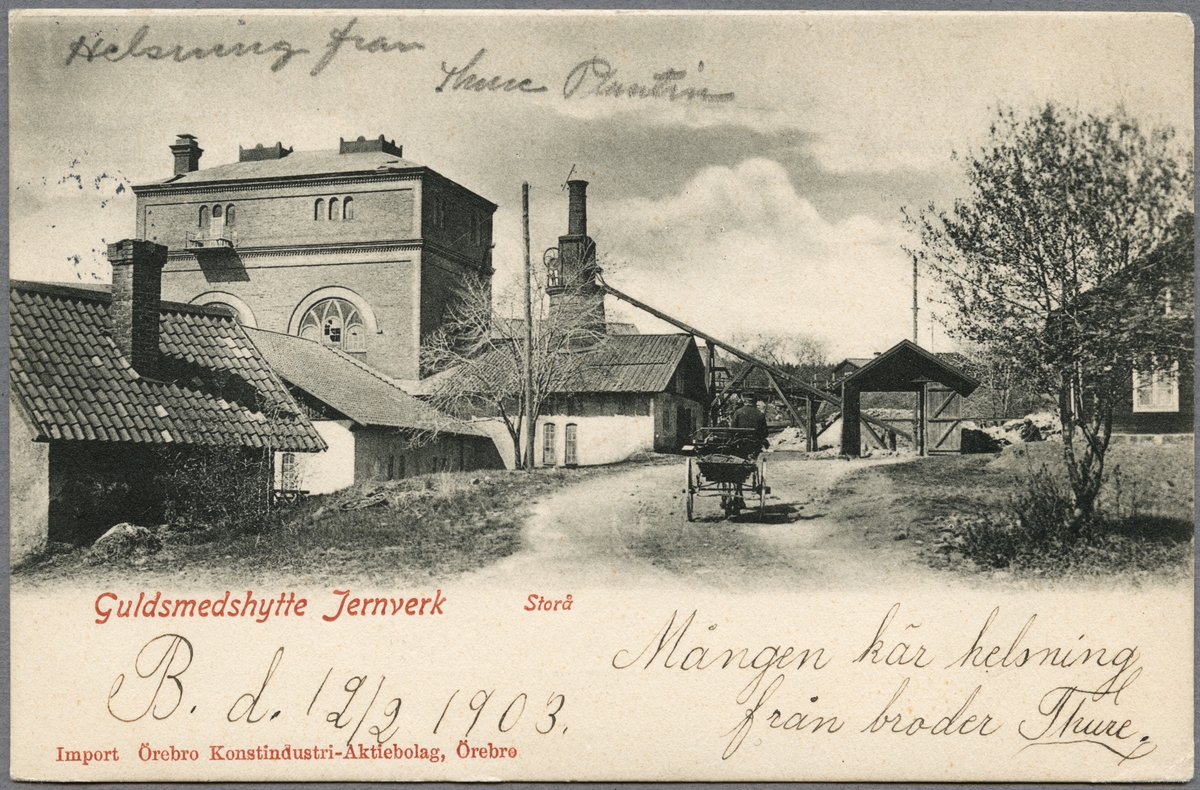 Helsning från
Thure Plantin
Guldsmedshytte Jernverk Storå
B. d. 19/2 1903.
Mången kär helsning
från broder Thure.
Import Örebro Konstindustri-Aktiebolag, Örebro